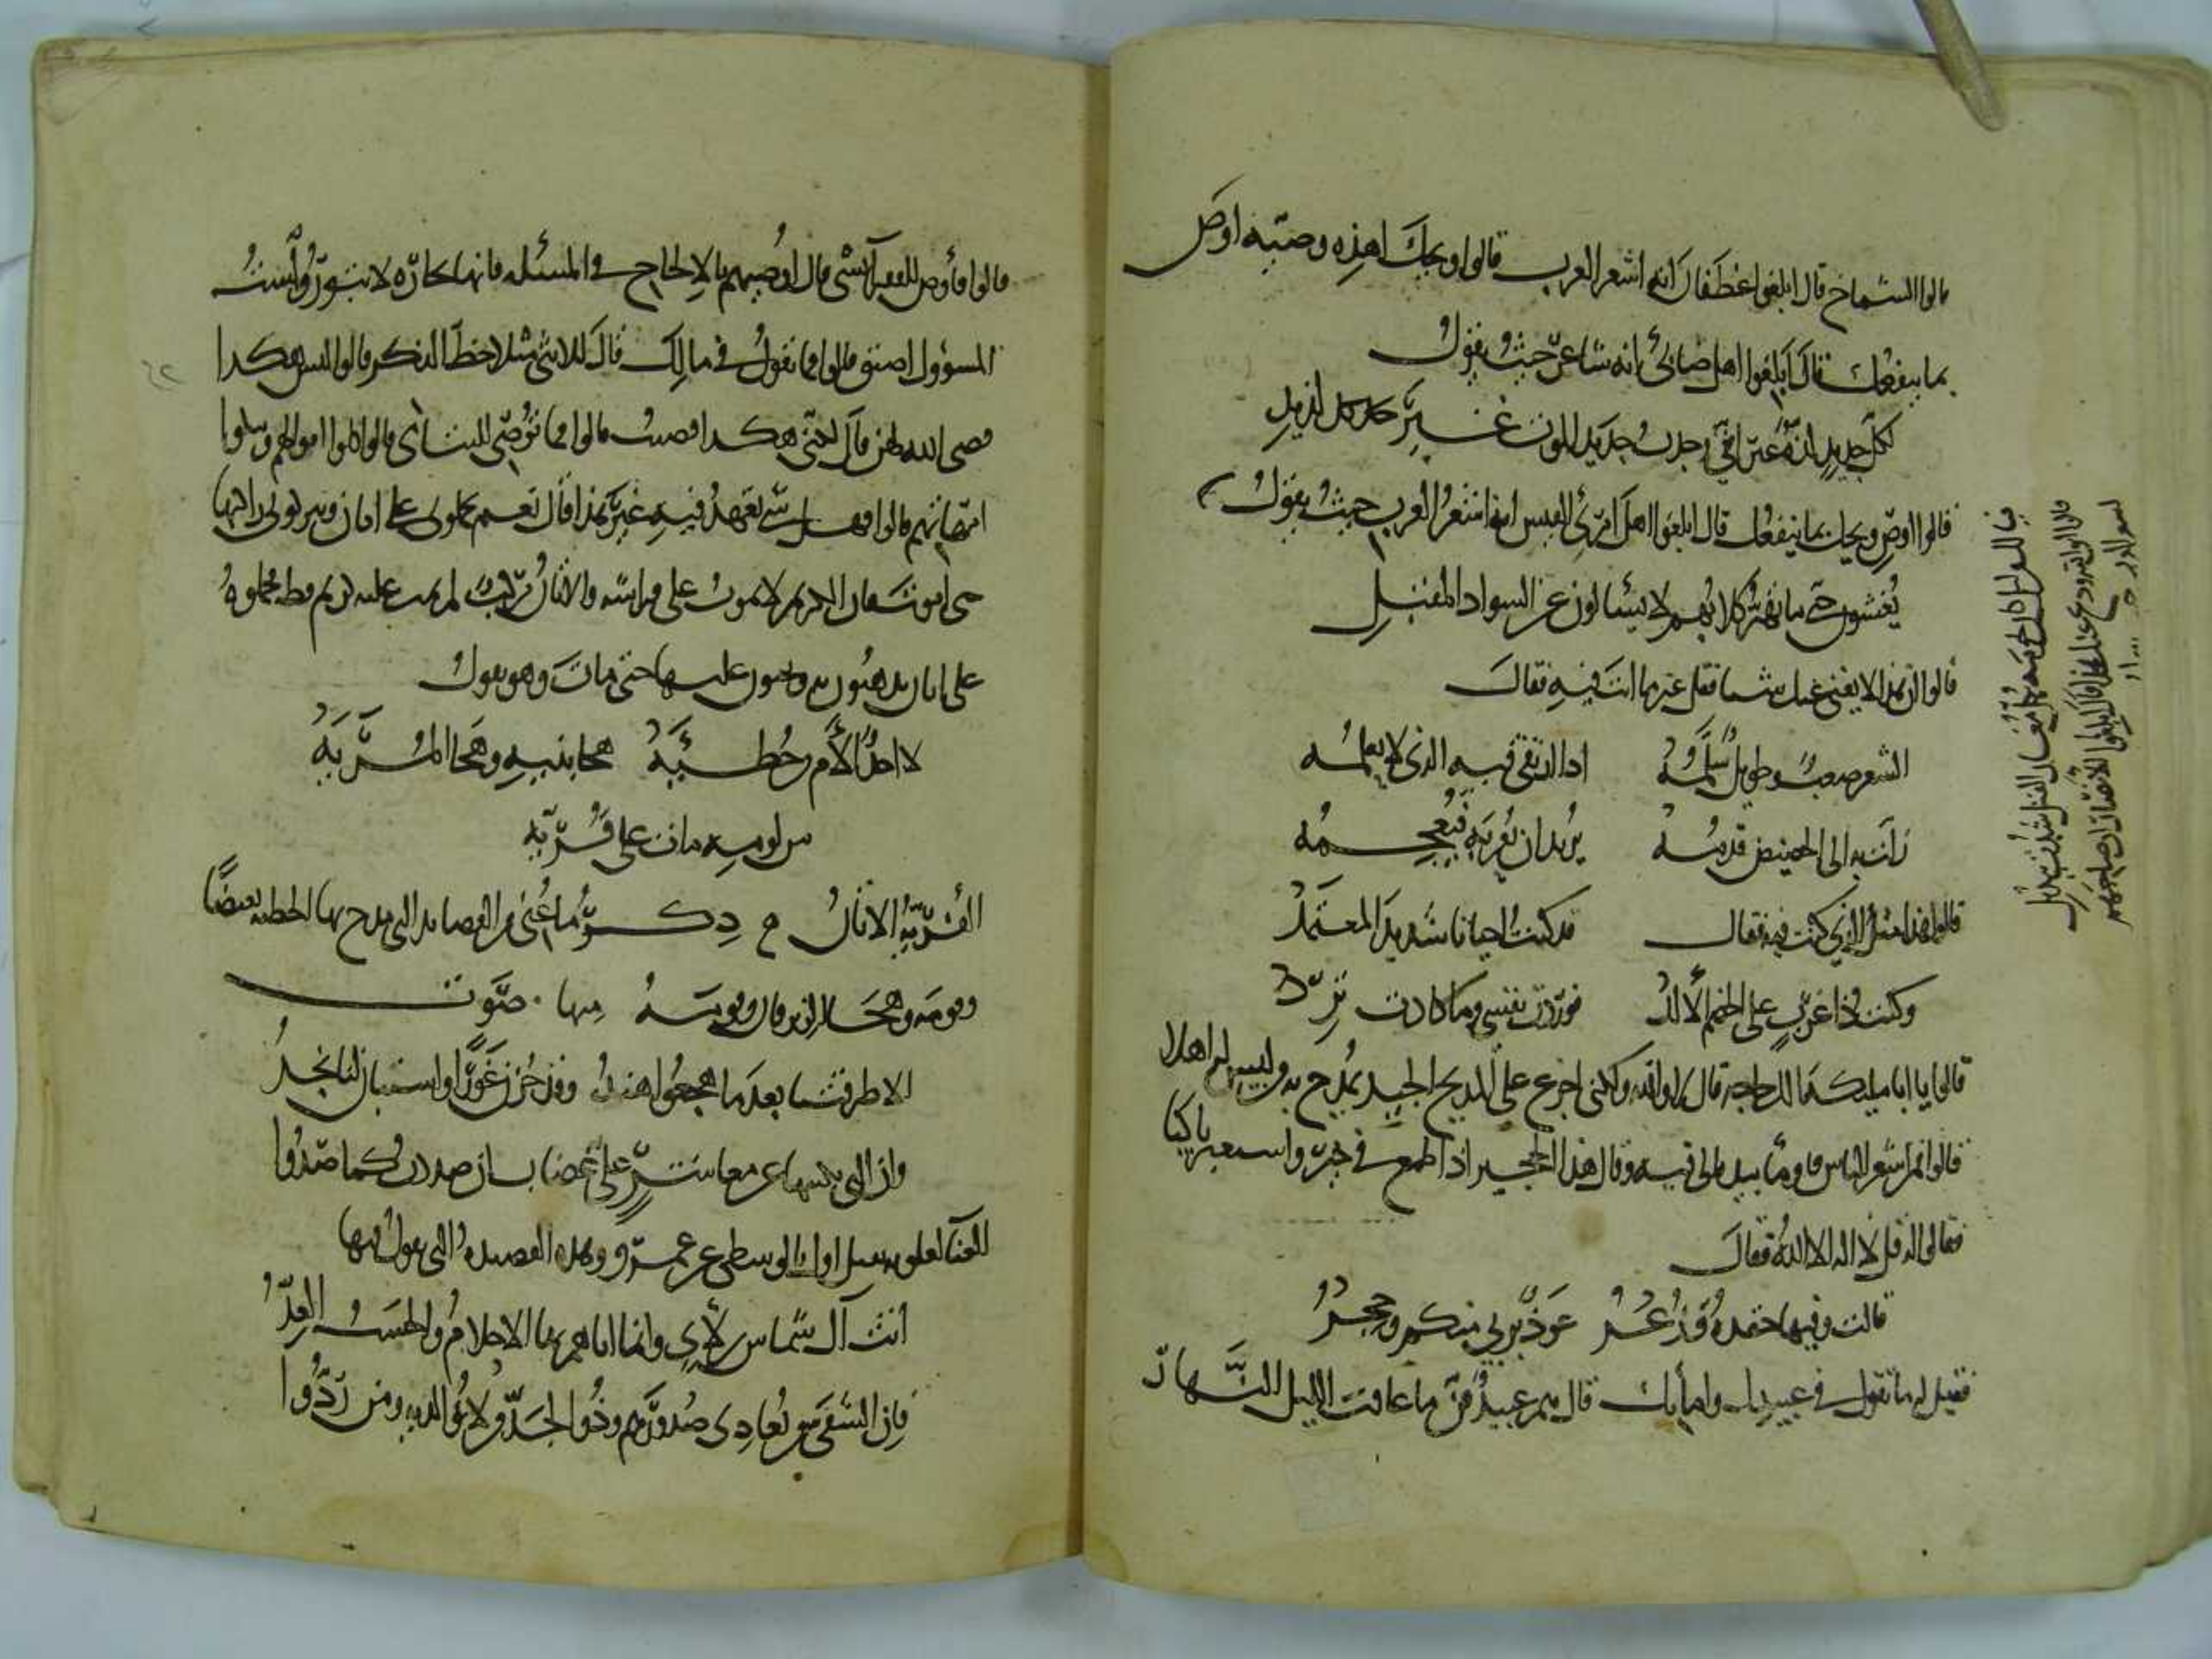 قالوا الشماخ قال ابلغوا غطفان انه اشعر العرب قالوا ويحك اهذه وصية اوص
بما ينفعك قال ابلغوا اهل ضابئ انه شاعر حيث يقول
لكل جديد لذة غير انني وجدت جديد الموت غير لذيذ
قالوا اوص ويحك بما ينفعك قال ابلغوا اهل امرئ القيس انه اشعر العرب حيث يقول
يغشون حتى ما تهر كلابهم لا يسألون عن السواد المقبل
قالوا ان هذا لا يغني عنك شيئا فقل غير ما انت فيه فقال
الشعر صعب وطويل سلمه اذا ارتقى فيه الذي لا يعلمه
زلت به الى الحضيض قدمه يريد ان يعربه فيعجمه
قالوا هذا مثل الذي كنت فيه فقال قد كنت احيانا شديد المعتمد
وكنت ذا غرب على الخصم الالد فوردت نفسي وما كادت ترد
قالوا يا ابا مليكة الك حاجة قال لا والله ولكني اجزع على المديح الجيد يمدح به من ليس له اهلا
قالوا فمن اشعر الناس فاومأ بيده الى فيه وقال هذا الحجير اذا طمع في خير واستعبر باكيا
فقالوا له قل لا اله الا الله فقال
قالت وفيها حيدة وذعر عوذ بربي منكم وحجر
فقيل له ما تقول في عبيدك وامائك قال هم عبيد قن ما عاقب الليل النهار
قالوا فأوص للفقرآ بشئ قال اوصيهم بالالحاح في المسئله فانها تجارة لا تبور واست
المسؤول اضيق قالوا فما تقول في مالك قال للانثى مثلا حظ الذكر قالوا ليس هكذا
قضى الله لهن قال لكني هكذا قضيت قالوا فما توصي لليتامى قال كلوا اموالهم ونيكوا
امهاتهم قالوا فهل شئ تعهد فيه غير هذا قال نعم تحملوني على اتان وتتركوني راكبها
حتى اموت فان الكريم لا يموت على فراشه والاتان مركب لم يمت عليه كريم قط فحملوه
على اتان يذهبون به ويجيئون عليها حتى مات وهو يقول
لا احد الأم من حطيئه هجا بنيه وهجا المريه
من لومه مات على فريه
الفرية الاتان ذكر ما غنى من القصائد التي مدح بها الحطيئه بغيضا
وقومه وهجا الزبرقان وقومه منها صوت
الا طرقتنا بعد ما هجعوا هند وقد جزن غورا واستبان لنا نجد
وان التي نكبتها عن معاشر علي غضاب ان صددت كما صدوا
الغنآ لعلويه ثقيل اول بالوسطى عن عمرو وهذه القصيده التي يقول فيها
انت آل شماس بن لأي وانما اتاهم بها الاحلام والحسب العد
فان الشقي من تعادي صدورهم وذو الجد من لانوا اليه ومن ودوا